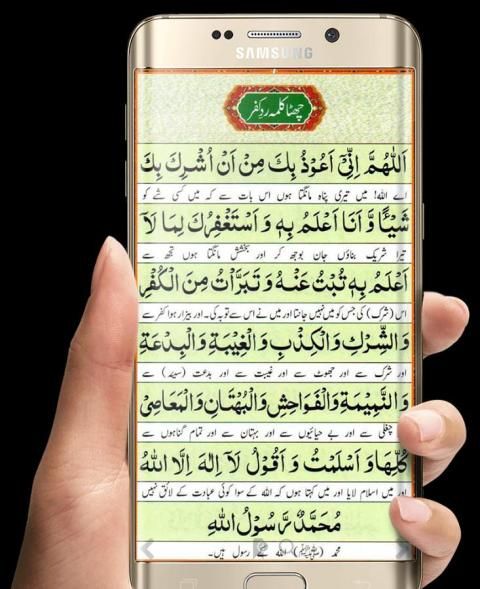 SAMSUNG
چھٹا کلمہ رد کفر
اَللّٰهُمَّ اِنِّیْۤ اَعُوْذُ بِكَ مِنْ اَنْ اُشْرِكَ بِكَ
اے اللہ! میں تیری پناہ مانگتا ہوں اس بات سے کہ میں کسی شے کو
شَیْـًٔا وَّ اَنَا اَعْلَمُ بِهٖ وَ اَسْتَغْفِرُكَ لِمَا لَاۤ
تیرا شریک بناؤں جان بوجھ کر اور بخشش مانگتا ہوں تجھ سے
اَعْلَمُ بِهٖ تُبْتُ عَنْهُ وَ تَبَرَّاْتُ مِنَ الْكُفْرِ
اس (شرک) کی جس کو میں نہیں جانتا اور میں نے اس سے توبہ کی۔ اور بیزار ہوا کفر سے
وَالشِّرْكِ وَالْكِذْبِ وَالْغِیْبَةِ وَالْبِدْعَةِ
اور شرک سے اور جھوٹ سے اور غیبت سے اور بدعت (سیئہ) سے
وَالنَّمِیْمَةِ وَالْفَوَاحِشِ وَالْبُهْتَانِ وَالْمَعَاصِیْ
چغلی سے اور بے حیائیوں سے اور بہتان سے اور تمام گناہوں سے
كُلِّهَا وَ اَسْلَمْتُ وَ اَقُوْلُ لَاۤ اِلٰهَ اِلَّا اللّٰهُ
اور میں اسلام لایا اور میں کہتا ہوں کہ اللہ کے سوا کوئی عبادت کے لائق نہیں
مُحَمَّدٌ رَّسُوْلُ اللّٰهِ
محمد (ﷺ) اللہ کے رسول ہیں۔